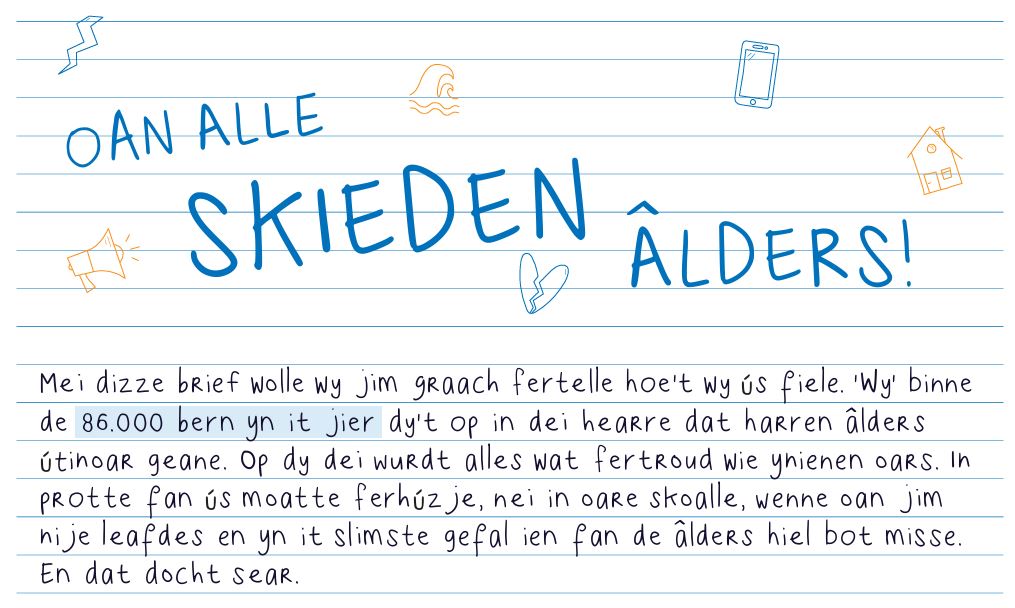 OAN ALLE
SKIEDEN
ÂLDERS!
Mei dizze brief wolle wy jim graach fertelle hoe't wy ús fiele. 'Wy' binne
de 86.000 bern yn it jier dy't op in dei hearre dat harren âlders
útinoar geane. Op dy dei wurdt alles wat fertroud wie ynienen oars. In
protte fan ús moatte ferhúzje, nei in oare skoalle, wenne oan jim
nije leafdes en yn it slimste gefal ien fan de âlders hiel bot misse.
En dat docht sear.